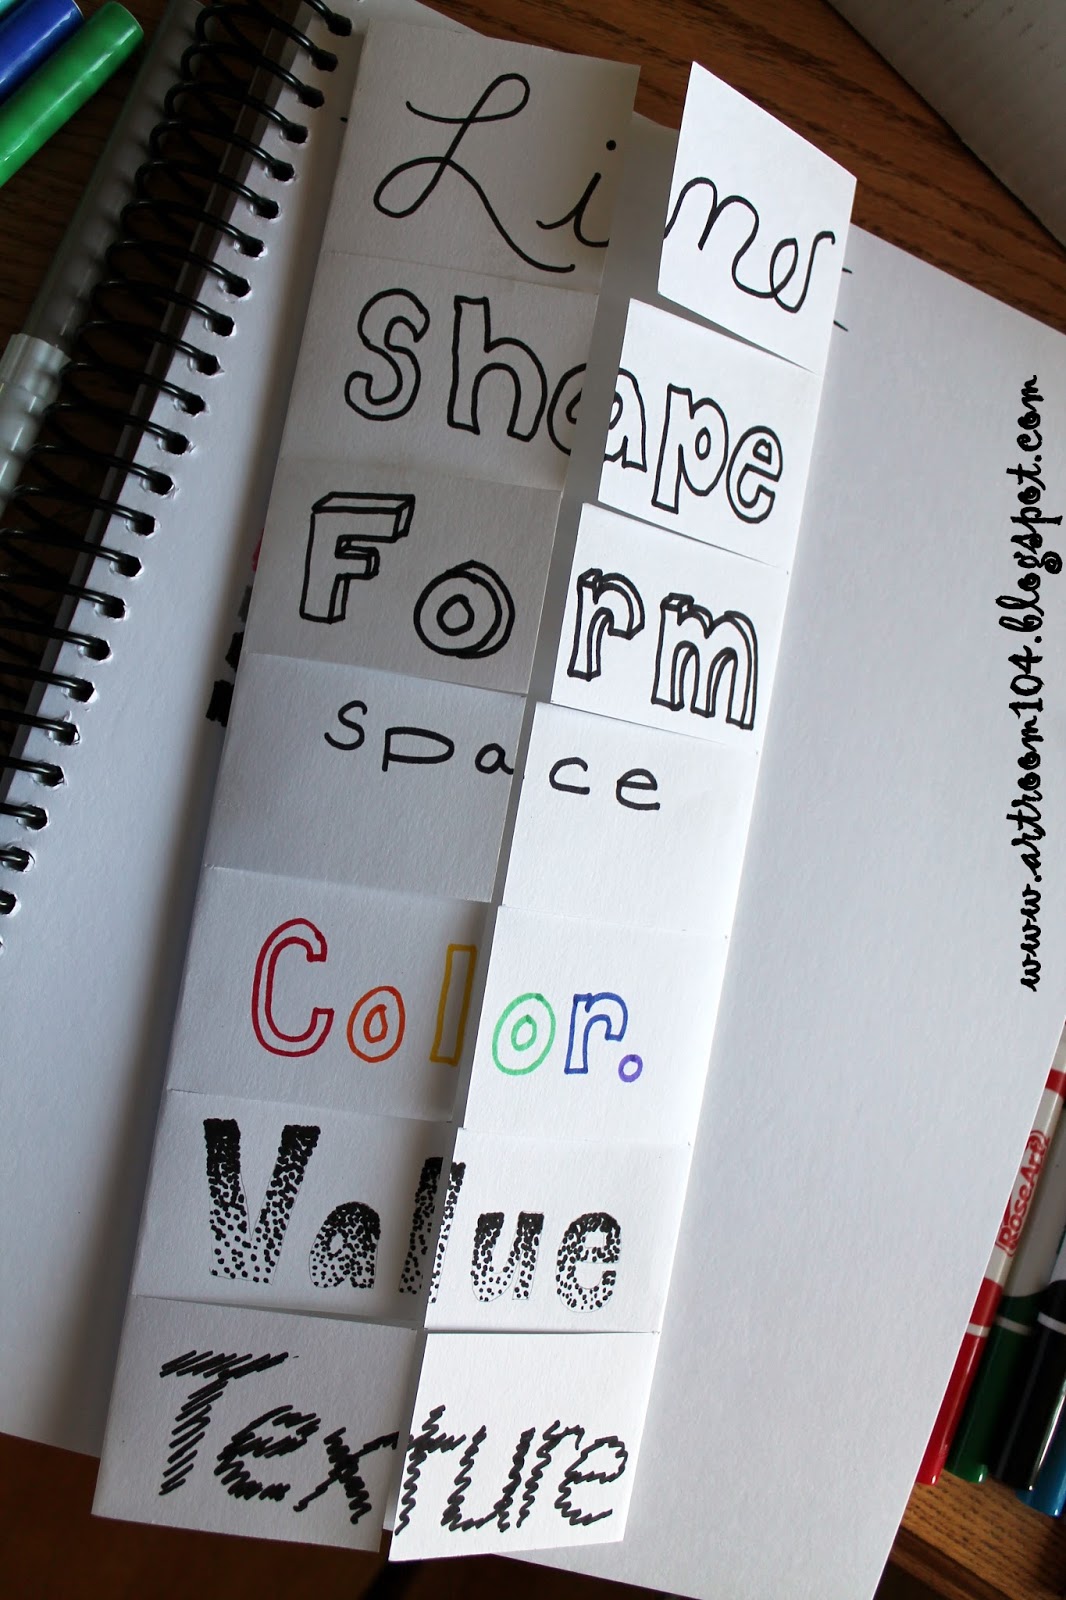 Line
Shape
Form
space
Color.
Value
Texture
www.artroom104.blogspot.com
RoseArt